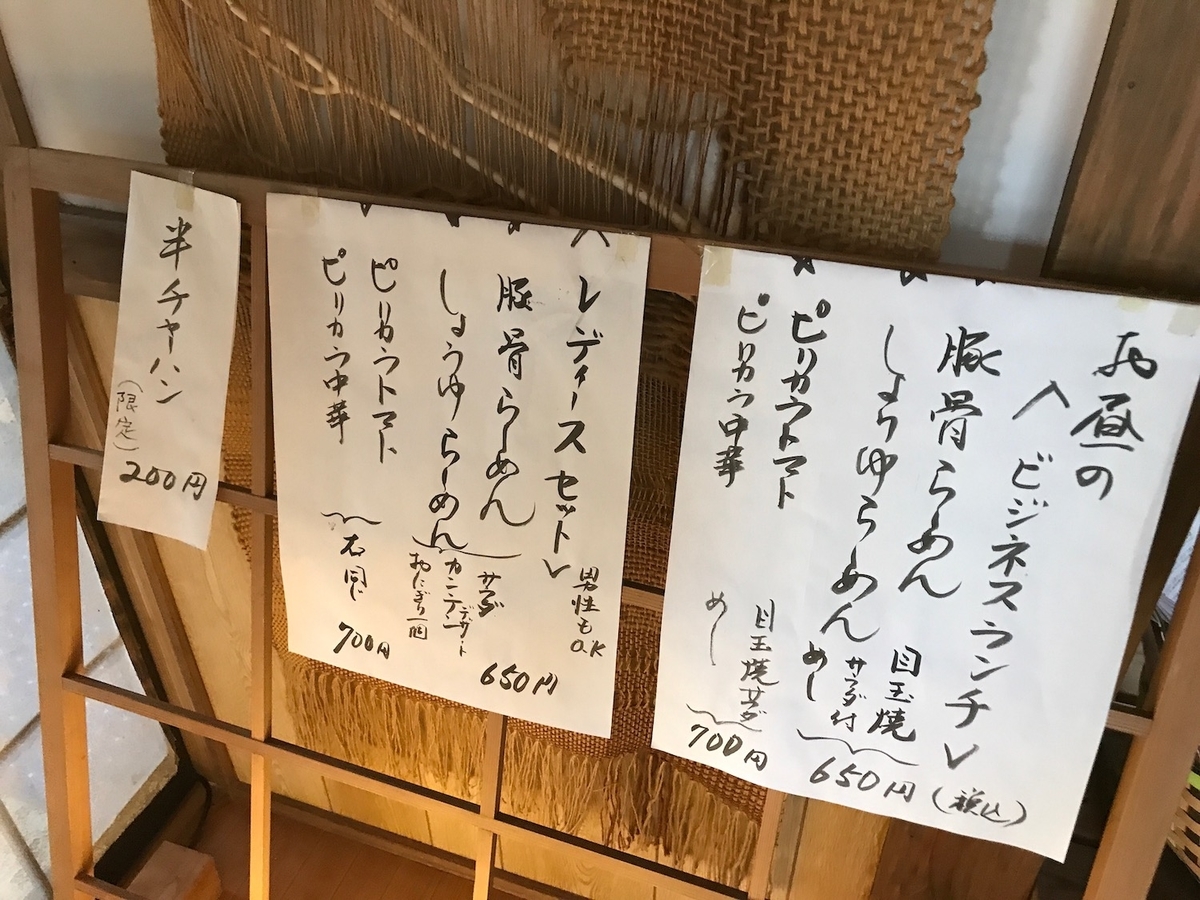 お昼の
＜ビジネスランチ＞
豚骨らーめん
しょうゆらーめん
目玉焼
サラダ付
めし
650円(税込)
ピリカラトマト
ピリカラ中華
目玉焼サラダ
めし
700円
＜レディースセット＞
男性もOK
豚骨らーめん
しょうゆらーめん
サラダ
デザート
カンテン
おにぎり一個
650円
ピリカラトマト
ピリカラ中華
右同じ
700円
半チャーハン
(限定)
200円